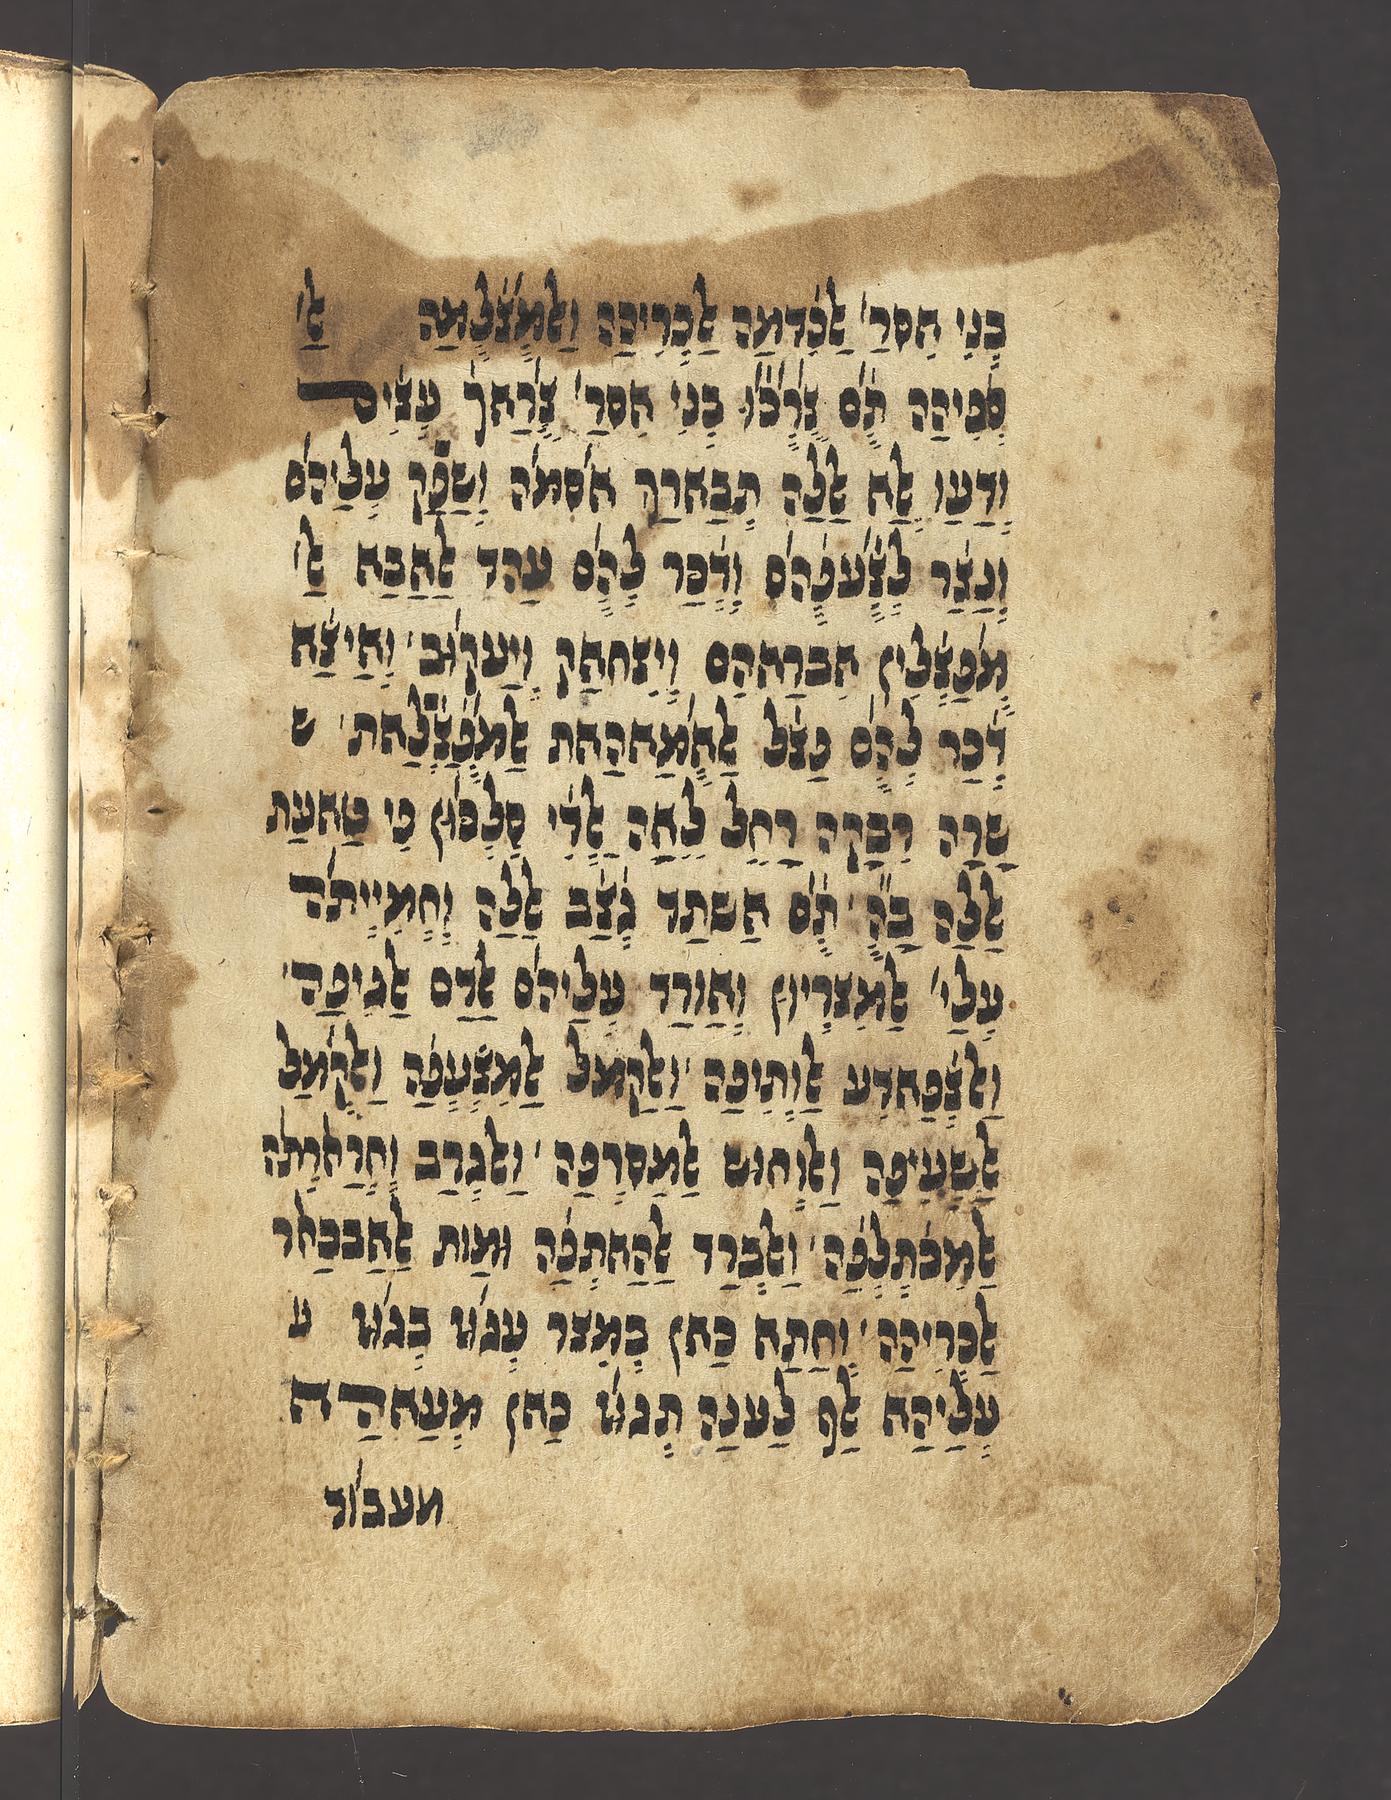 בְנִי חִסרַ׳ אַלכִדְמַה אַלכְּרִיהַה וַאלמֻצְׄלְמַה אַל׳
סְפִיהַה תְׄם צְרְכֹׄו בְנִי חִסרַ׳ צְרַאךְ עְצִׄים
וְדַעַו אַלַא אַללַה תְבַארַךְ אסמֹה וְשַׁפַק עְלַיהֹם
וְנַצַׄר לְצְׄעפְהֹם וְדְׄכַר לְהְם עַהד אַלאַבַא אַל׳
מֹפַצְׄלִין אִברַאהַם וְיִצחַאַק וְיַעקֹוב׳ וְאַיצַׄא
דְׄכַר לְהְם פַצׄל אַלאֻמַאהַאת אַלמֹפַצְׄלַאת׳ ש
שַׂרַה רִבַקַה רַחֵל לֵאַה אַלְדִׄי סַלְכֹּון פִי טַאעַת
אַללַה בַהֻ׳ תְׄם אַשתַד גְצַׄב אַללַה וְחַמִייתֹה
עְלַי׳ אַלמִצרְיוּן וְאַורַד עְלַיהֹם אַלדַם אַלגִיפַה׳
וַאלצְׄפַאדִע אַלוְתִיכַה׳ וַאלקַמל אַלמִצְׄעְפַׄה וַאלקְמַל
אַלשַׁעִיפַה וַאלוְחוּשׁ אַלמַסרְפַה׳ וַאלגְרַב וְחַרַארְתֹה
אַלמִכׄתְלְפַה׳ וַאלבְרַד אַלהַאתְכַה וּמַות אַלאַבכַּאר
אַלכְּרִיהַה׳ וְחַתַא כַּאן בְמִצר עְגֹׄוּ בְגֹׄוּ ע
עְלַיהַא אַלף לַענַה תְגֹׄוּ כַּאן מְעַאהַדַה
מעבוד